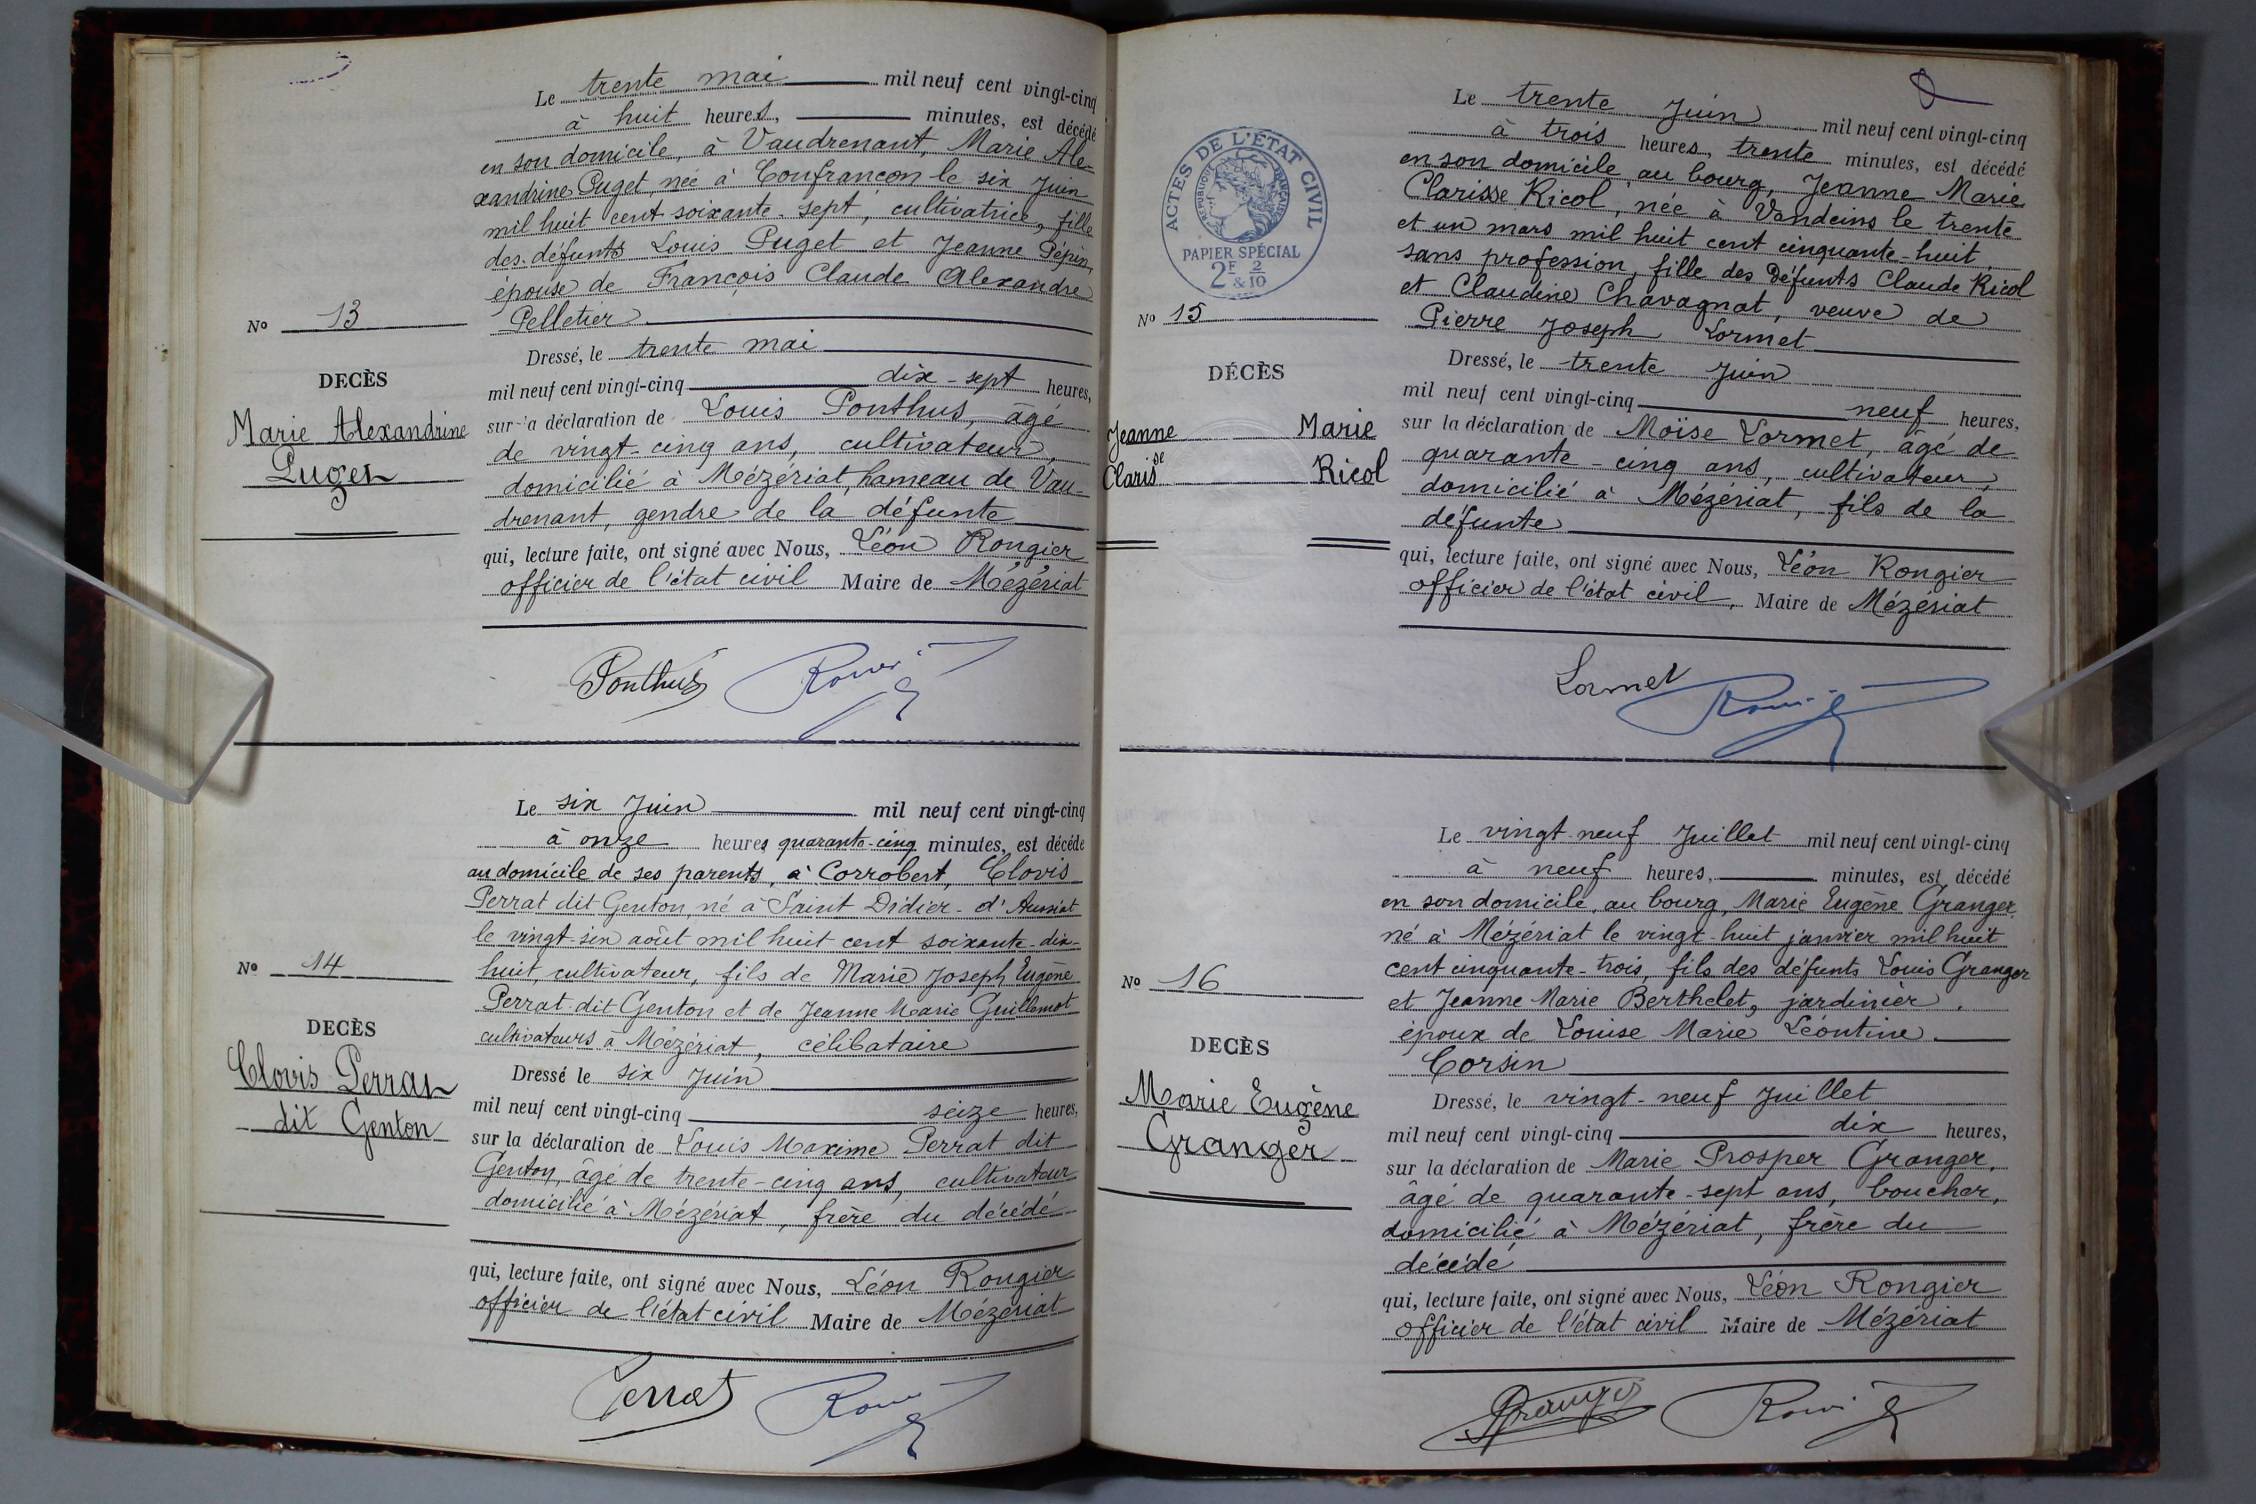 Le trente mai mil neuf cent vingt-cinq
à huit heures, minutes, est décédé
en son domicile, à Vaudrenant, Marie Ale-
xandrine Puget, née à Confrançon le six Juin
mil huit cent soixante-sept, cultivatrice, fille
des défunts Louis Puget et Jeanne Pépin,
épouse de François Claude Alexandre
Pelletier
Nº 13
DECÈS
Marie Alexandrine
Puget
Dressé, le trente mai
mil neuf cent vingt-cinq dix-sept heures,
sur la déclaration de Louis Ponthus, âgé
de vingt-cinq ans, cultivateur,
domicilié à Mézériat, hameau de Vau-
drenant, gendre de la défunte
qui, lecture faite, ont signé avec Nous, Léon Rongier
officier de l'état civil Maire de Mézériat
Ponthus
Le six Juin mil neuf cent vingt-cinq
à onze heures quarante-cinq minutes, est décédé
au domicile de ses parents, à Corrobert, Clovis
Perrat dit Genton, né à Saint Didier-d'Aussiat
le vingt-six août mil huit cent soixante-dix-
huit, cultivateur, fils de Marie Joseph Eugène
Perrat dit Genton et de Jeanne Marie Guillemot
cultivateurs à Mézériat, célibataire
Nº 14
DECÈS
Clovis Perrat
dit Genton
Dressé le six Juin
mil neuf cent vingt-cinq seize heures,
sur la déclaration de Louis Maxime Perrat dit
Genton, âgé de trente-cinq ans, cultivateur
domicilié à Mézériat, frère du décédé
qui, lecture faite, ont signé avec Nous, Léon Rongier
officier de l'état civil Maire de Mézériat
Perrat
ACTES DE L'ÉTAT CIVIL
REPUBLIQUE FRANÇAISE
PAPIER SPÉCIAL
2F 2/10
& 10
Le trente Juin mil neuf cent vingt-cinq
à trois heures, trente minutes, est décédé
en son domicile au bourg, Jeanne Marie
Clarisse Ricol, née à Vandeins le trente
et un mars mil huit cent cinquante-huit
sans profession, fille des défunts Claude Ricol
et Claudine Chavagnat, veuve de
Pierre Joseph Lormet
Nº 15
DÉCÈS
Jeanne Marie
Clarisse Ricol
Dressé, le trente Juin
mil neuf cent vingt-cinq neuf heures,
sur la déclaration de Moïse Lormet, âgé de
quarante-cinq ans, cultivateur,
domicilié à Mézériat, fils de la
défunte
qui, lecture faite, ont signé avec Nous, Léon Rongier
officier de l'état civil, Maire de Mézériat
Lormet
Le vingt-neuf Juillet mil neuf cent vingt-cinq
à neuf heures, minutes, est décédé
en son domicile, au bourg, Marie Eugène Granger
né à Mézériat le vingt-huit janvier mil huit
cent cinquante-trois, fils des défunts Louis Granger
et Jeanne Marie Berthelet, jardinier,
époux de Louise Marie Léontine
Corsin
Nº 16
DECÈS
Marie Eugène
Granger
Dressé, le vingt-neuf Juillet
mil neuf cent vingt-cinq dix heures,
sur la déclaration de Marie Prosper Granger,
âgé de quarante-sept ans, boucher,
domicilié à Mézériat, frère du
décédé
qui, lecture faite, ont signé avec Nous, Léon Rongier
officier de l'état civil Maire de Mézériat
Granger